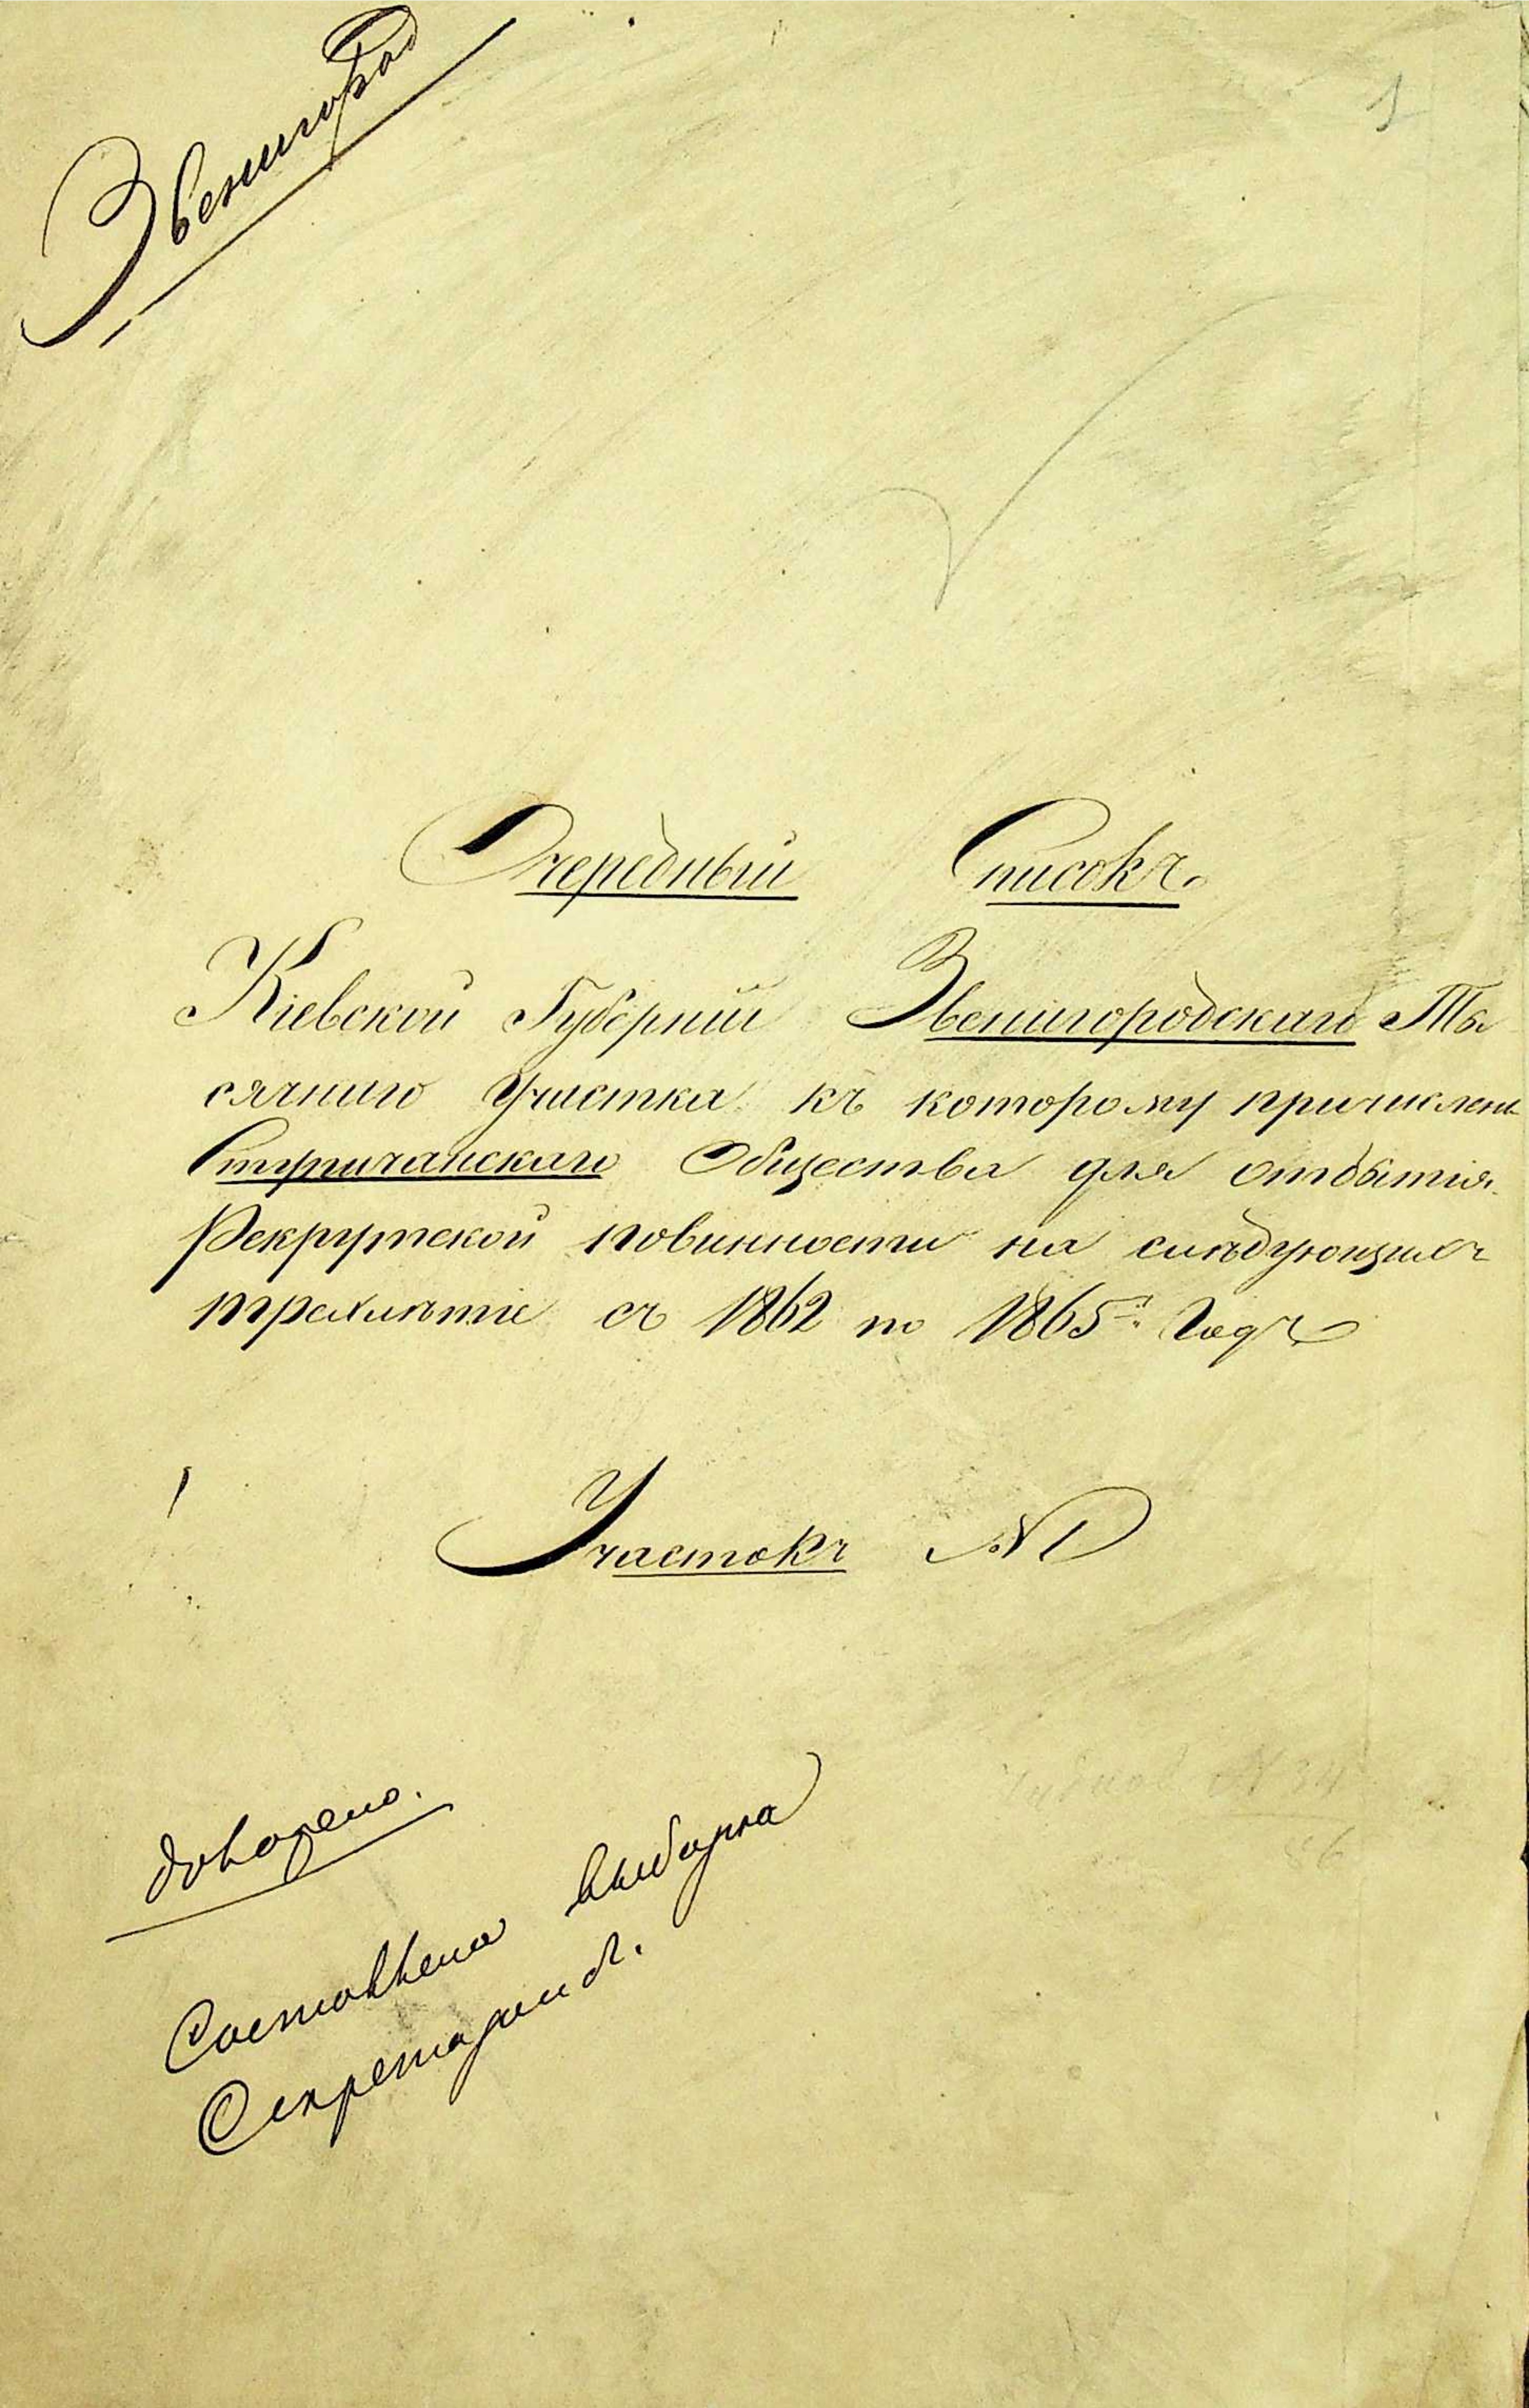 Звенигород
1
Очередный Списокъ.
Кіевской Губерніи Звенигородскаго Ты
сячнаго Участка къ которому причислены
Стуричанскаго Общества для отбытія
Рекрутской повинности на слѣдующихъ
трехлѣтіе съ 1862 по 1865й Годъ
Участокъ № 1
доложено.
Составлена выборка
Секретарит.
№ 34
86